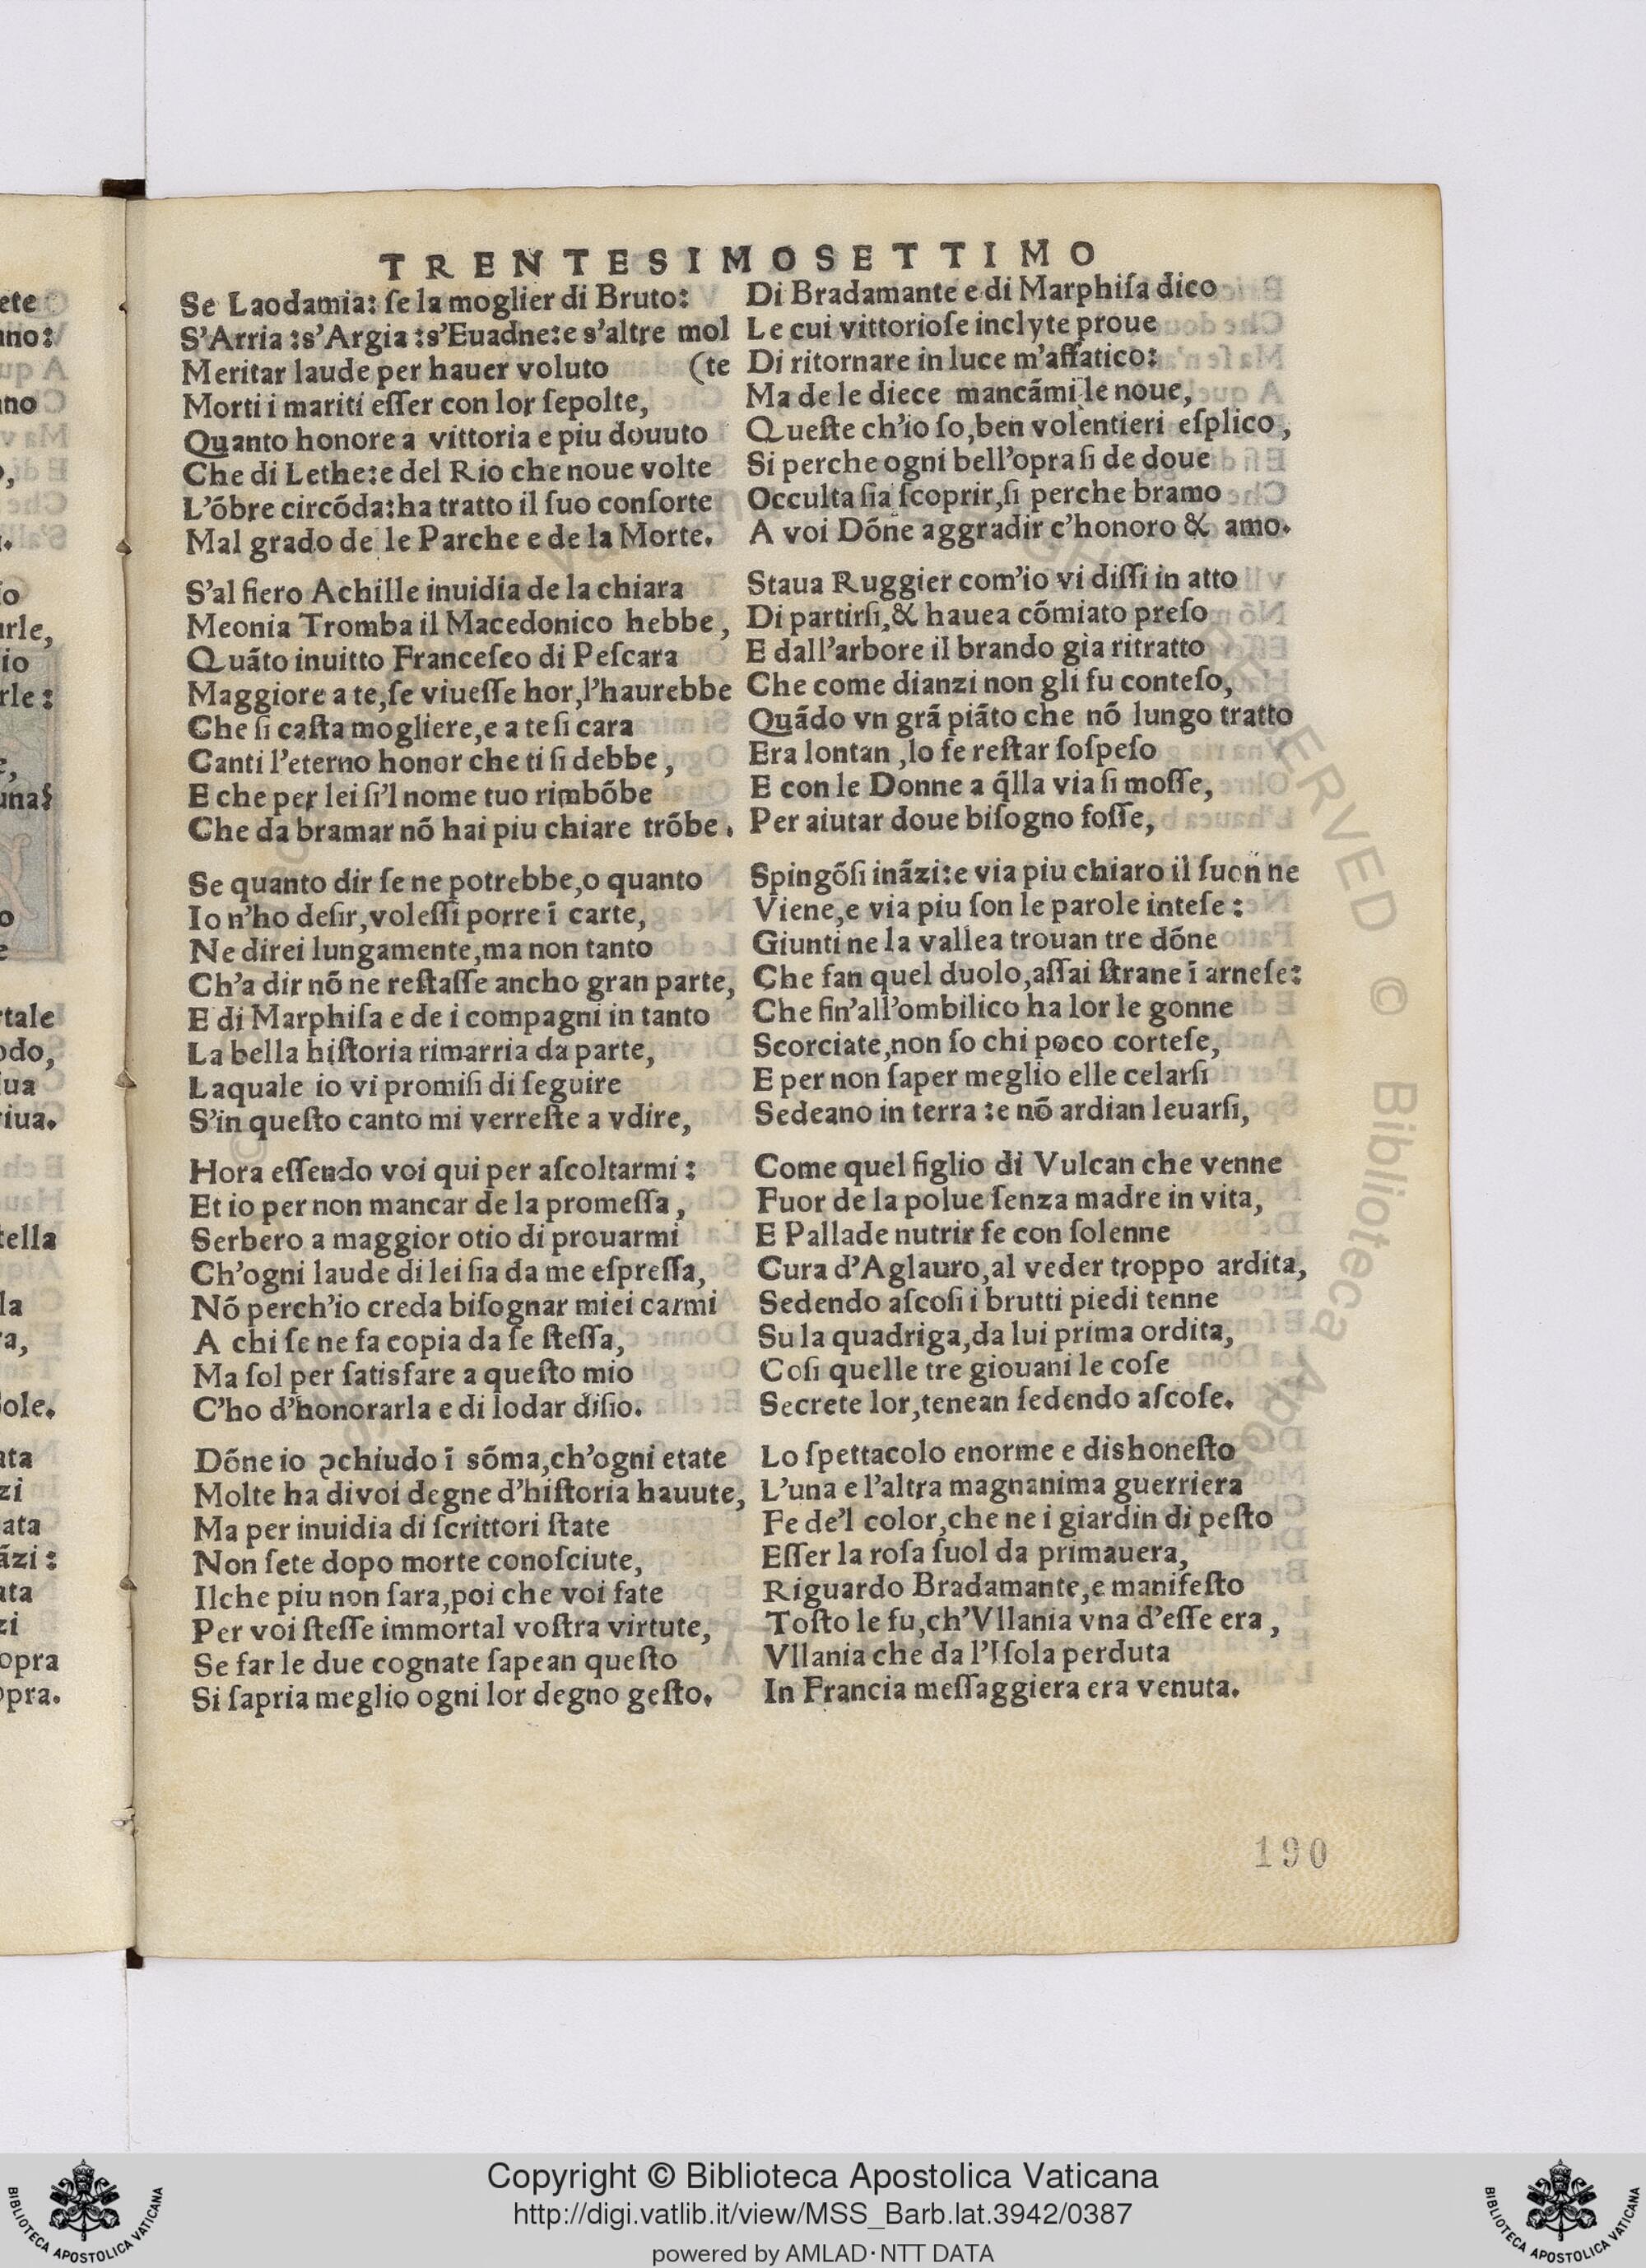 TRENTESIMOSETTIMO
Se Laodamia: ſe la moglier di Bruto:
S'Arria :s'Argia :s'Euadne:e s'altre mol
Meritar laude per hauer voluto (te
Morti i mariti eſſer con lor ſepolte,
Quanto honore a vittoria e piu douuto
Che di Lethe:e del Rio che noue volte
L'õbre circõda:ha tratto il ſuo conſorte
Mal grado de le Parche e de la Morte.
S'al fiero Achille inuidia de la chiara
Meonia Tromba il Macedonico hebbe,
Quãto inuitto Franceſco di Peſcara
Maggiore a te,ſe viueſſe hor,l'haurebbe
Che ſi caſta mogliere,e a te ſi cara
Canti l'eterno honor che ti ſi debbe,
E che per lei ſi'l nome tuo rimbõbe
Che da bramar nõ hai piu chiare trõbe.
Se quanto dir ſe ne potrebbe,o quanto
Io n'ho deſir,voleſſi porre ĩ carte,
Ne direi lungamente,ma non tanto
Ch'a dir nõ ne reſtaſſe ancho gran parte,
E di Marphiſa e de i compagni in tanto
La bella hiſtoria rimarria da parte,
Laquale io vi promiſi di ſeguire
S'in queſto canto mi verreſte a vdire,
Hora eſſendo voi qui per aſcoltarmi:
Et io per non mancar de la promeſſa,
Serbero a maggior otio di prouarmi
Ch'ogni laude di lei ſia da me eſpreſſa,
Nõ perch'io creda biſognar miei carmi
A chi ſe ne fa copia da ſe ſteſſa,
Ma ſol per ſatisfare a queſto mio
C'ho d'honorarla e di lodar diſio.
Dõne io ꝯchiudo ĩ sõma,ch'ogni etate
Molte ha di voi degne d'hiſtoria hauute,
Ma per inuidia di ſcrittori ſtate
Non ſete dopo morte conoſciute,
Ilche piu non ſara,poi che voi fate
Per voi ſteſſe immortal voſtra virtute,
Se far le due cognate ſapean queſto
Si ſapria meglio ogni lor degno geſto.
Di Bradamante e di Marphiſa dico
Le cui vittorioſe inclyte proue
Di ritornare in luce m'affatico:
Ma de le diece mancãmi le noue,
Queſte ch'io ſo,ben volentieri eſplico,
Si perche ogni bell'opra ſi de doue
Occulta ſia ſcoprir,ſi perche bramo
A voi Dõne aggradir c'honoro & amo.
Staua Ruggier com'io vi diſſi in atto
Di partirſi,& hauea cõmiato preſo
E dall'arbore il brando gia ritratto
Che come dianzi non gli fu conteſo,
Quãdo vn grã piãto che nõ lungo tratto
Era lontan ,lo fe reſtar ſoſpeſo
E con le Donne a q̃lla via ſi moſſe,
Per aiutar doue biſogno foſſe,
Spingõſi inãzi:e via piu chiaro il ſuon ne
Viene,e via piu ſon le parole inteſe:
Giunti ne la vallea trouan tre dõne
Che fan quel duolo,aſſai ſtrane ĩ arneſe:
Che fin'all'ombilico ha lor le gonne
Scorciate,non ſo chi poco corteſe,
E per non ſaper meglio elle celarſi
Sedeano in terra :e nõ ardian leuarſi,
Come quel figlio di Vulcan che venne
Fuor de la polue ſenza madre in vita,
E Pallade nutrir fe con ſolenne
Cura d'Aglauro,al veder troppo ardita,
Sedendo aſcoſi i brutti piedi tenne
Su la quadriga,da lui prima ordita,
Coſi quelle tre giouani le coſe
Secrete lor,tenean ſedendo aſcoſe.
Lo ſpettacolo enorme e dishoneſto
L'una e l'altra magnanima guerriera
Fe de'l color,che ne i giardin di peſto
Eſſer la roſa ſuol da primauera,
Riguardo Bradamante,e manifeſto
Toſto le fu,ch'Vllania vna d'eſſe era,
Vllania che da l'Iſola perduta
In Francia meſſaggiera era venuta.
190
Copyright © Biblioteca Apostolica Vaticana
http://digi.vatlib.it/view/MSS_Barb.lat.3942/0387
powered by AMLAD·NTT DATA
BIBLIOTECA APOSTOLICA VATICANA
BIBLIOTECA APOSTOLICA VATICANA